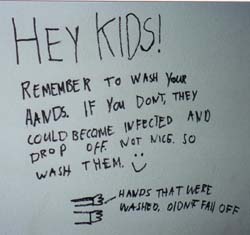 HEY KIDS!
REMEMBER TO WASH YOUR
HANDS. IF YOU DONT, THEY
COULD BECOME INFECTED AND
DROP OFF. NOT NICE. SO
WASH THEM.
HANDS THAT WERE
WASHED, DIDN'T FALL OFF